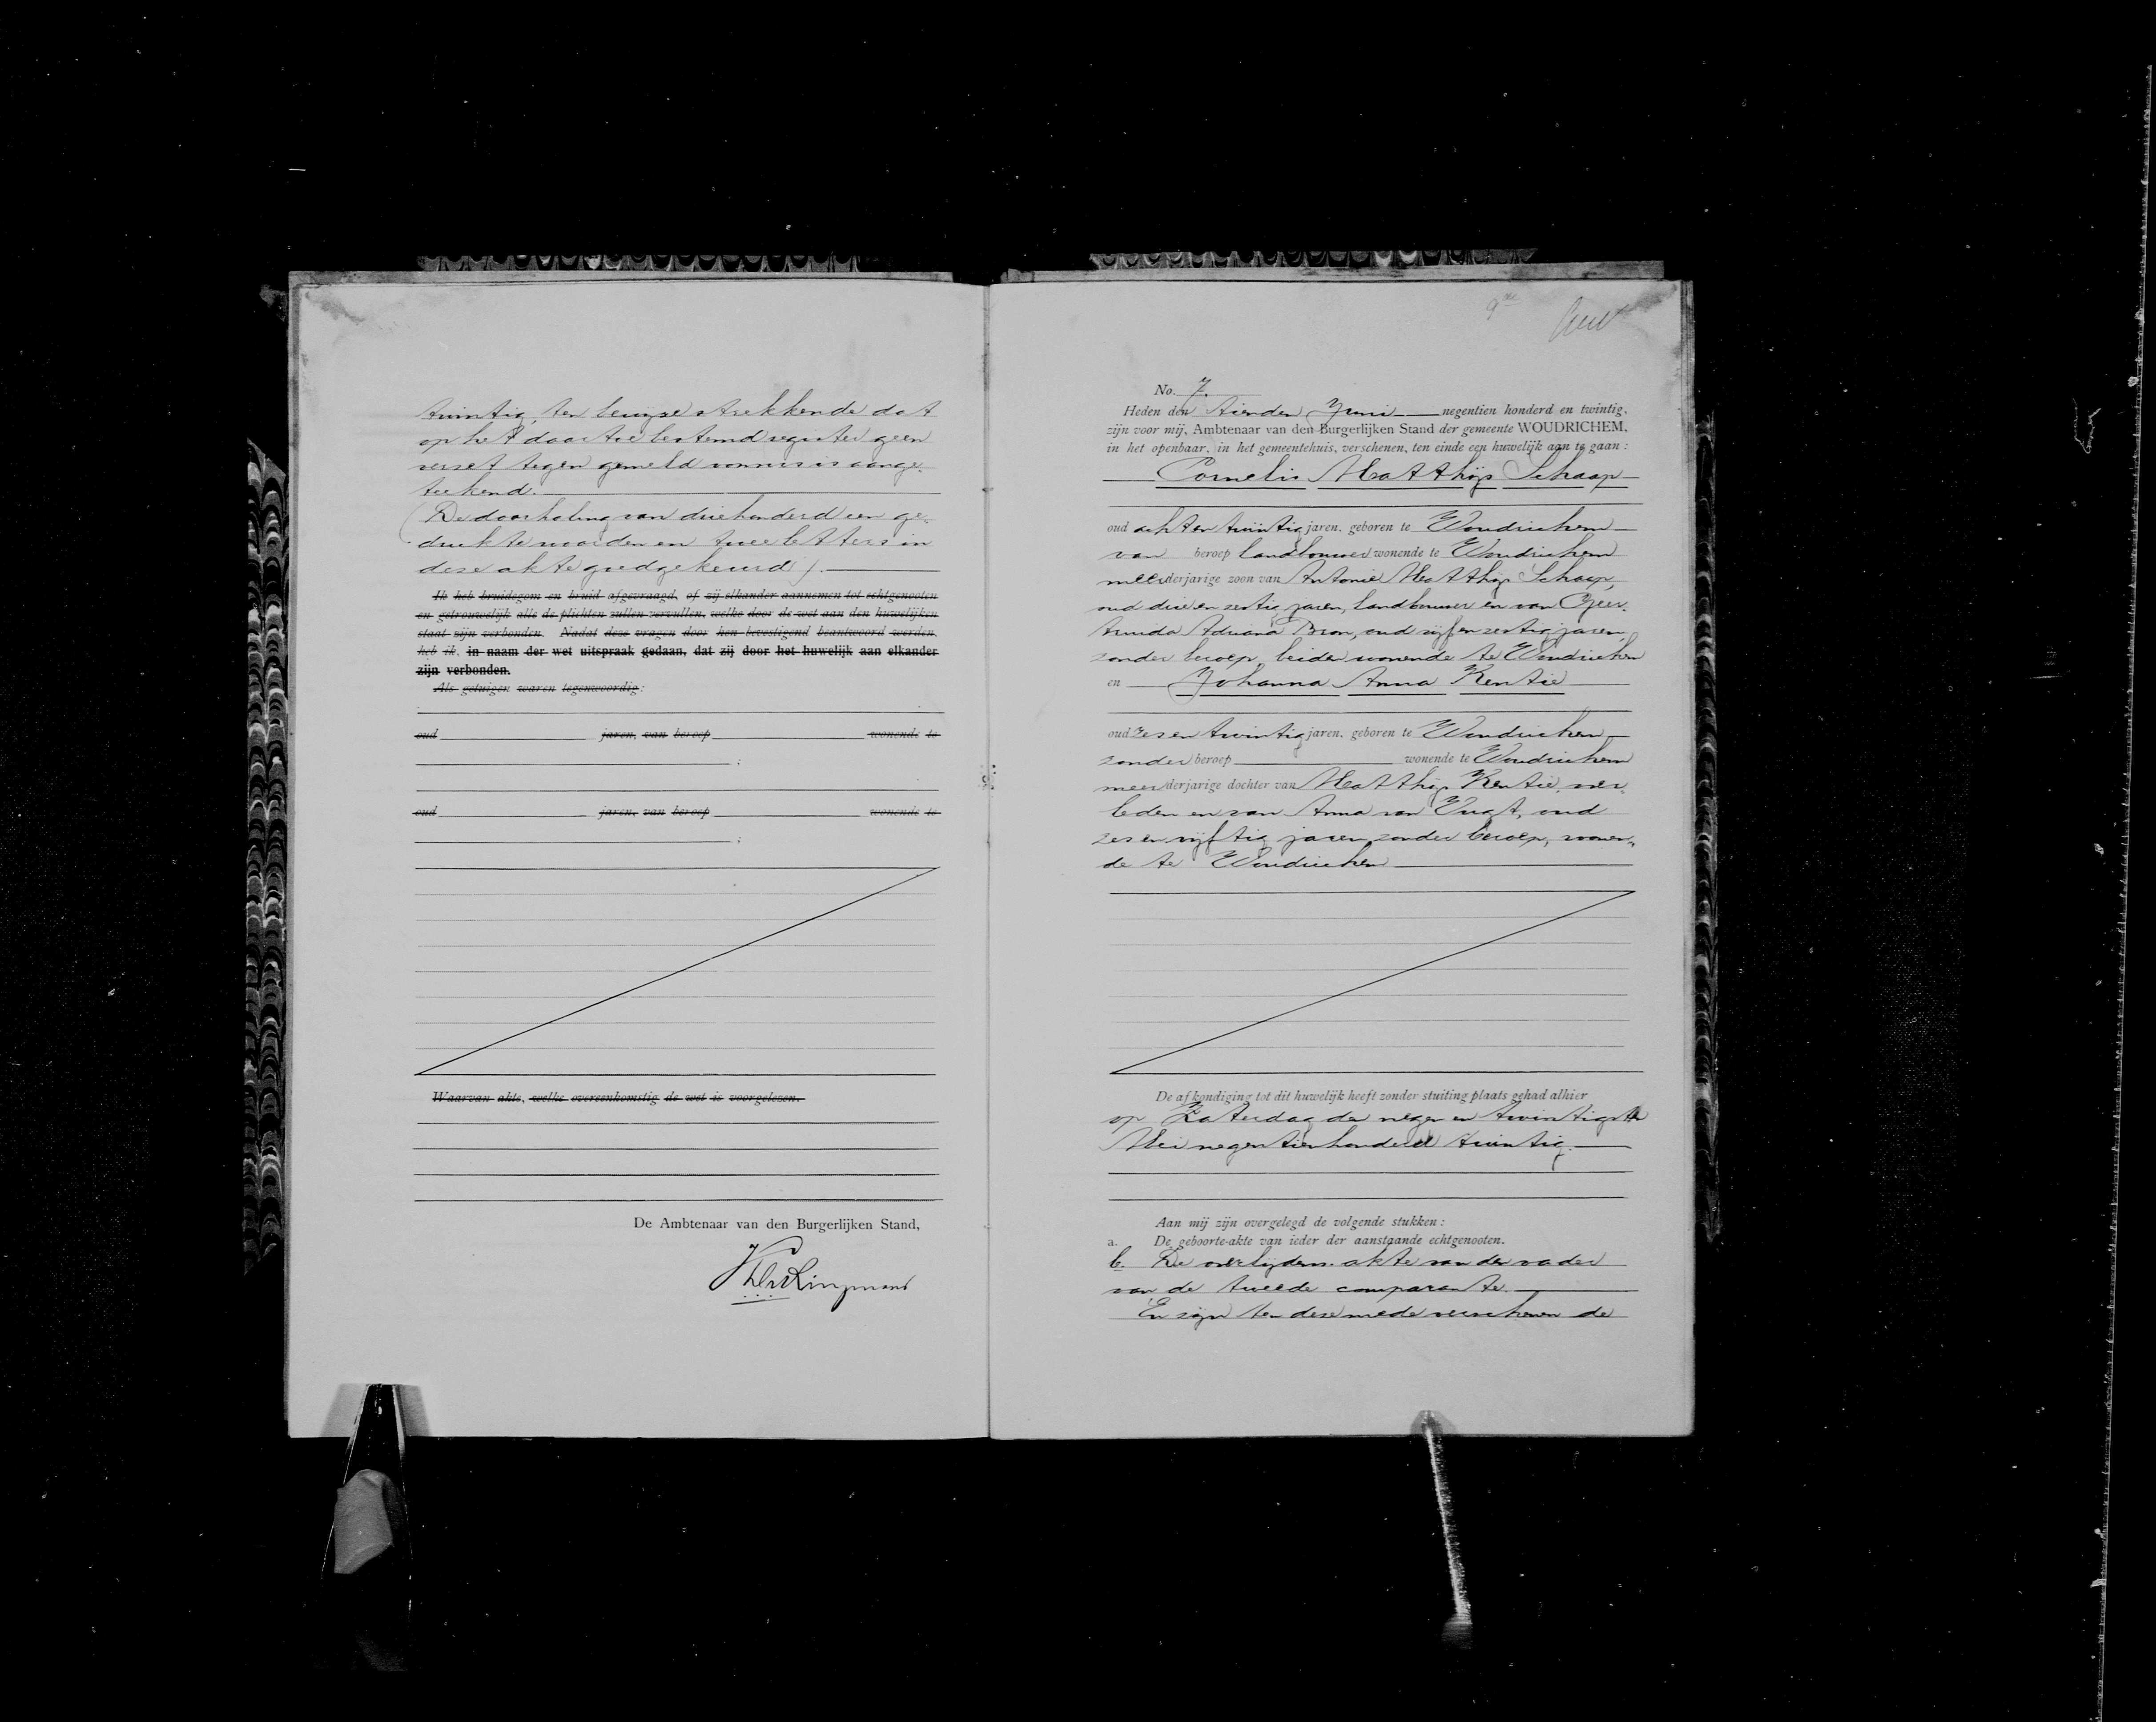 twintig, ten bewijze strekkende dat
op het daartoe bestemd register geen
verzet tegen gemeld vonnis is aange-
teekend.
(De doorhaling van driehonderd een ge-
drukte woorden en twee letters in
deze akte goedgekeurd).
Ik heb bruidegom en bruid afgevraagd, of zij elkander aannemen tot echtgenooten
en getrouwelijk alle de plichten zullen vervullen, welke door de wet aan den huwelijken
staat zijn verbonden. Nadat deze vragen door hen bevestigend beantwoord werden,
heb ik, in naam der wet uitspraak gedaan, dat zij door het huwelijk aan elkander
zijn verbonden.
Als getuigen waren tegenwoordig:
oud jaren, van beroep wonende te
;
oud jaren, van beroep wonende te
;
Waarvan akte, welke overeenkomstig de wet is voorgelezen.
De Ambtenaar van den Burgerlijken Stand,
No. 7.
Heden den tienden Juni negentien honderd en twintig,
zijn voor mij, Ambtenaar van den Burgerlijken Stand der gemeente WOUDRICHEM,
in het openbaar, in het gemeentehuis, verschenen, ten einde een huwelijk aan te gaan:
Cornelis Matthijs Schaap
oud acht en twintig jaren, geboren te Woudrichem
van beroep landbouwer wonende te Woudrichem
meerderjarige zoon van Antonie Matthijs Schaap,
oud drie en zestig jaren, landbouwer en van Geer-
truida Adriana Bron, oud vijf en zestig jaren,
zonder beroep, beiden wonende te Woudrichem
en Johanna Anna Kentie
oud zes en twintig jaren, geboren te Woudrichem
zonder beroep wonende te Woudrichem
meerderjarige dochter van Matthijs Kentie, over-
leden en van Anna van Vugt, oud
zes en vijftig jaren, zonder beroep, wonen-
de te Woudrichem
De afkondiging tot dit huwelijk heeft zonder stuiting plaats gehad alhier
op Zaterdag de negen en twintigste
Mei negentienhonderd twintig.
Aan mij zijn overgelegd de volgende stukken:
a. De geboorte-akte van ieder der aanstaande echtgenooten.
b. De overlijdens-akte van den vader
van de tweede comparante.
En zijn ten deze mede verschenen de